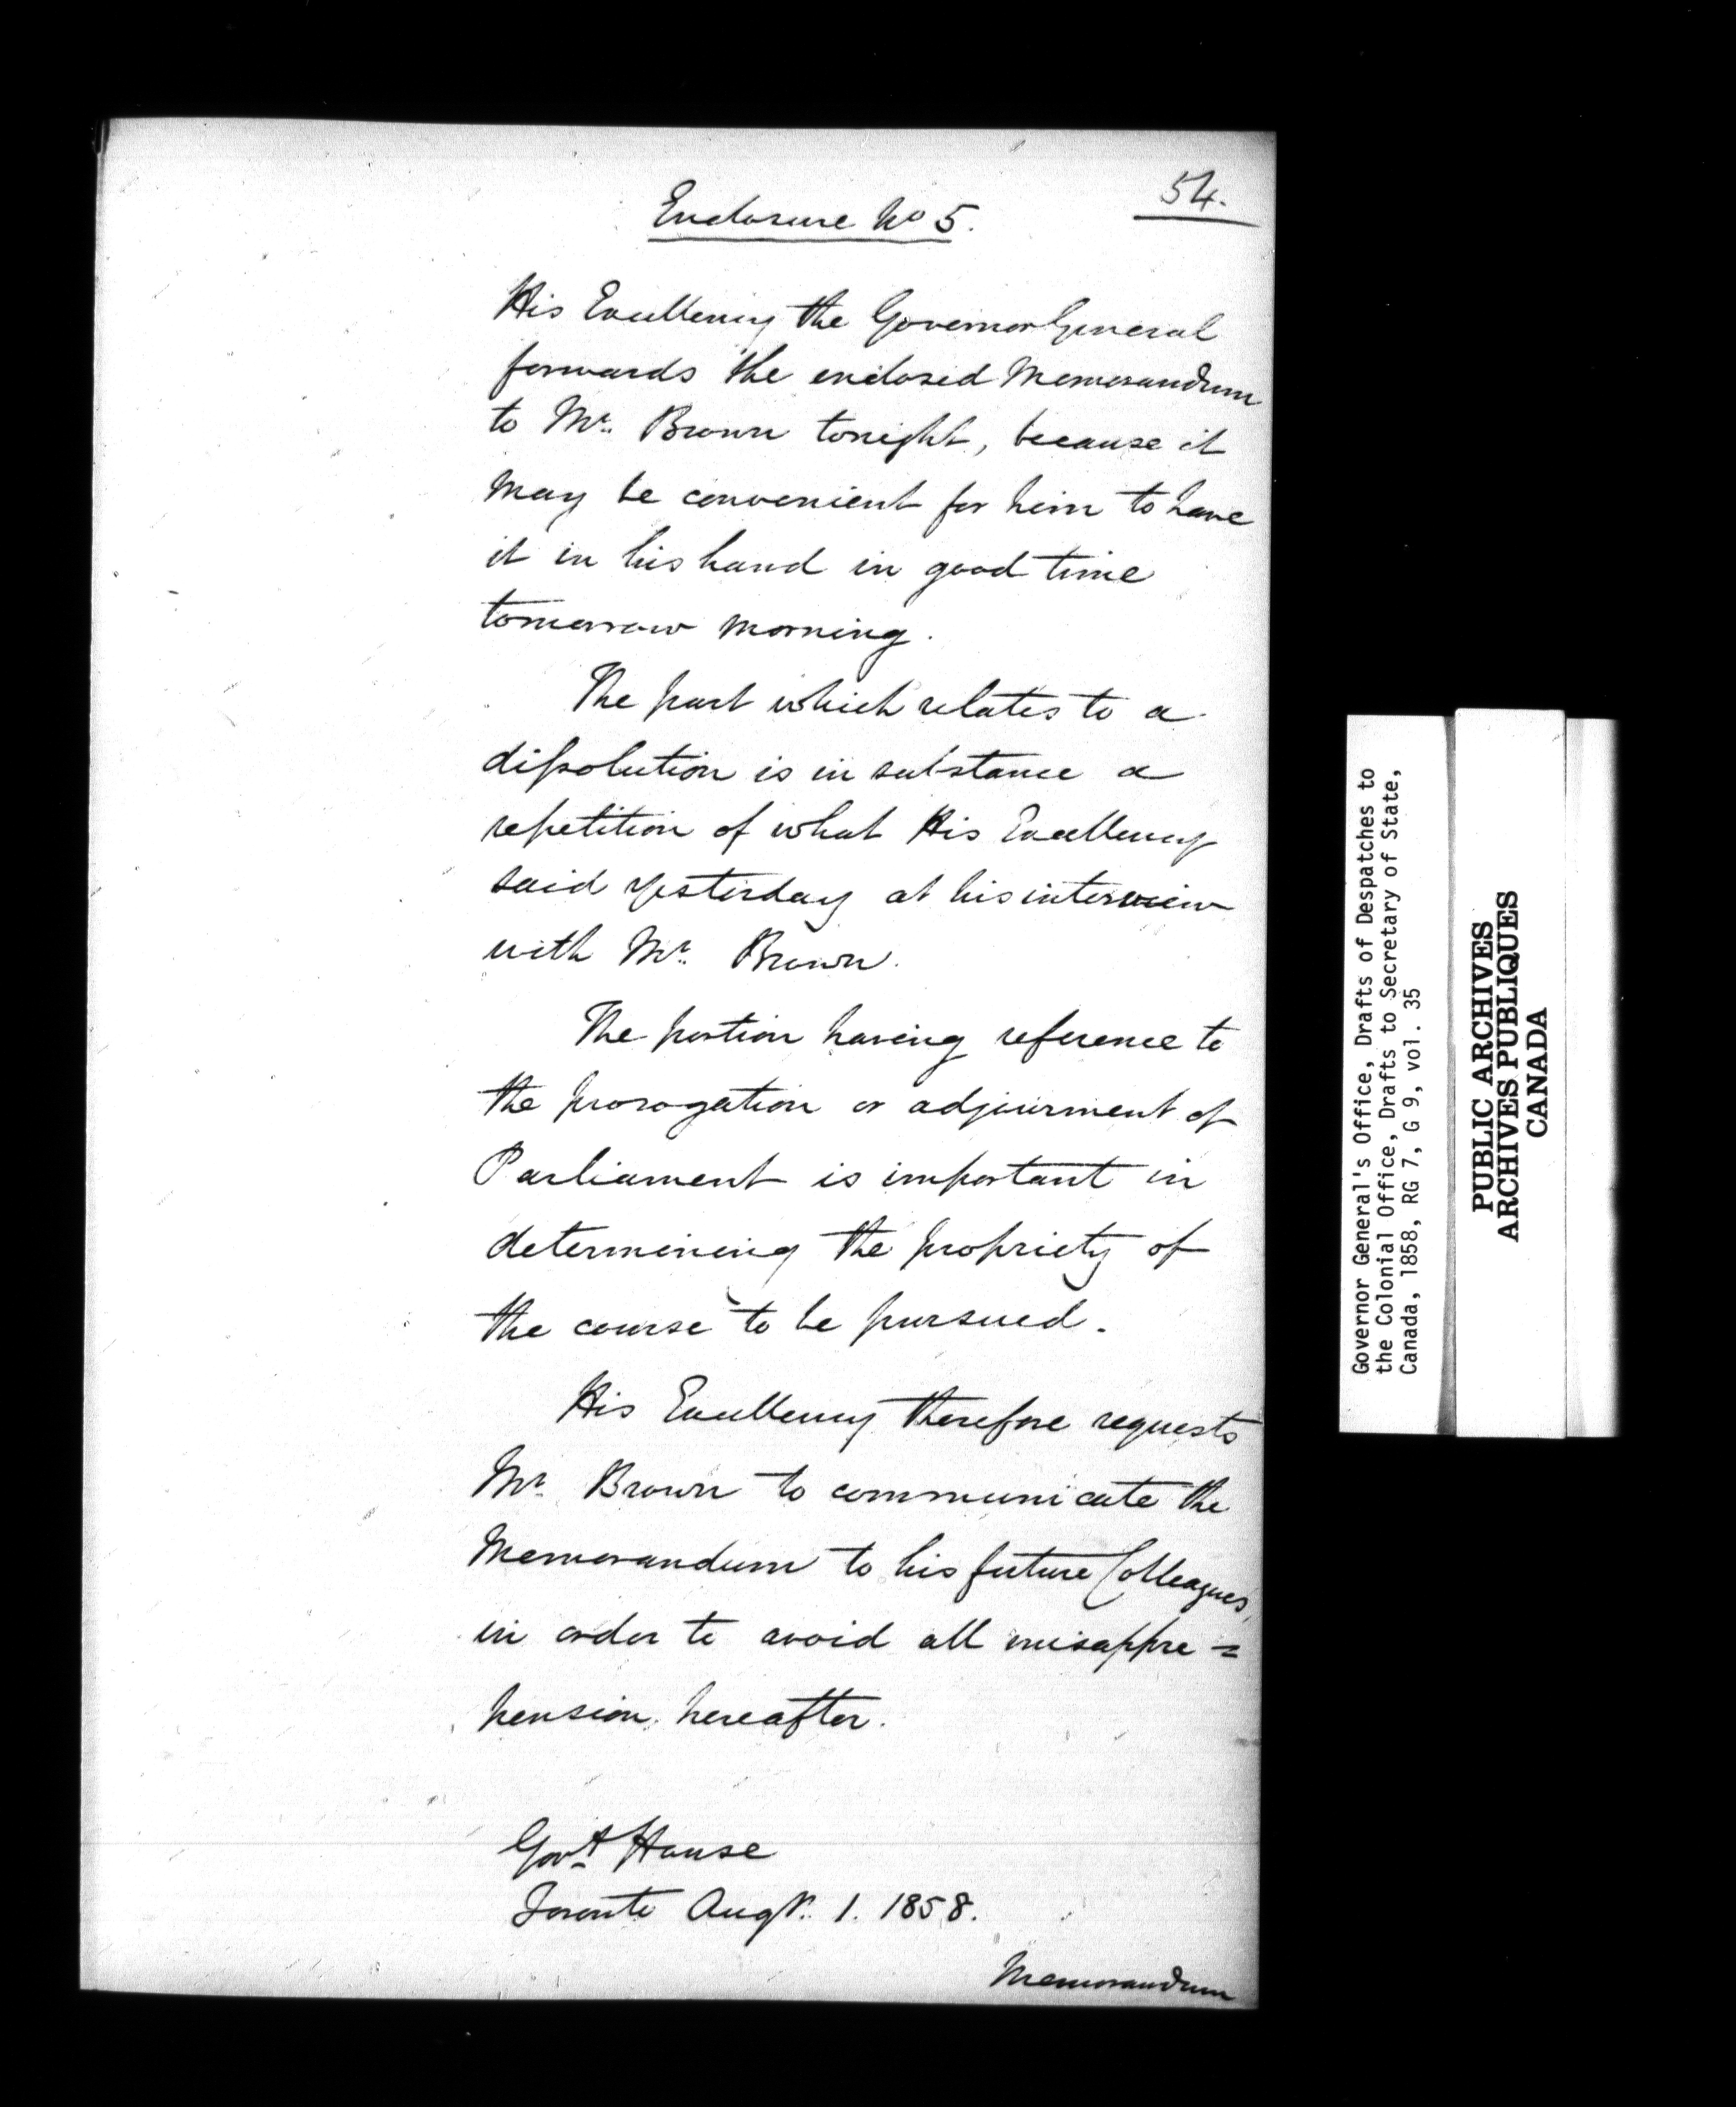 54.
Enclosure No 5.
His Excellency the Governor General
forwards the enclosed Memorandum
to Mr. Brown tonight, because it
may be convenient for him to have
it in his hand in good time
tomorrow morning.
The part which relates to a
dissolution is in substance a
repetition of what His Excellency
said yesterday at his interview
with Mr. Brown.
The portion having reference to
the prorogation or adjournment of
Parliament is important in
determining the propriety of
the course to be pursued.
His Excellency therefore requests
Mr. Brown to communicate the
Memorandum to his future Colleagues,
in order to avoid all misappre=
hension hereafter.
Govt House
Toronto Augt. 1. 1858.
Memorandum
Governor General's Office, Drafts of Despatches to
the Colonial Office, Drafts to Secretary of State,
Canada, 1858, RG 7, G 9, vol. 35
PUBLIC ARCHIVES
ARCHIVES PUBLIQUES
CANADA